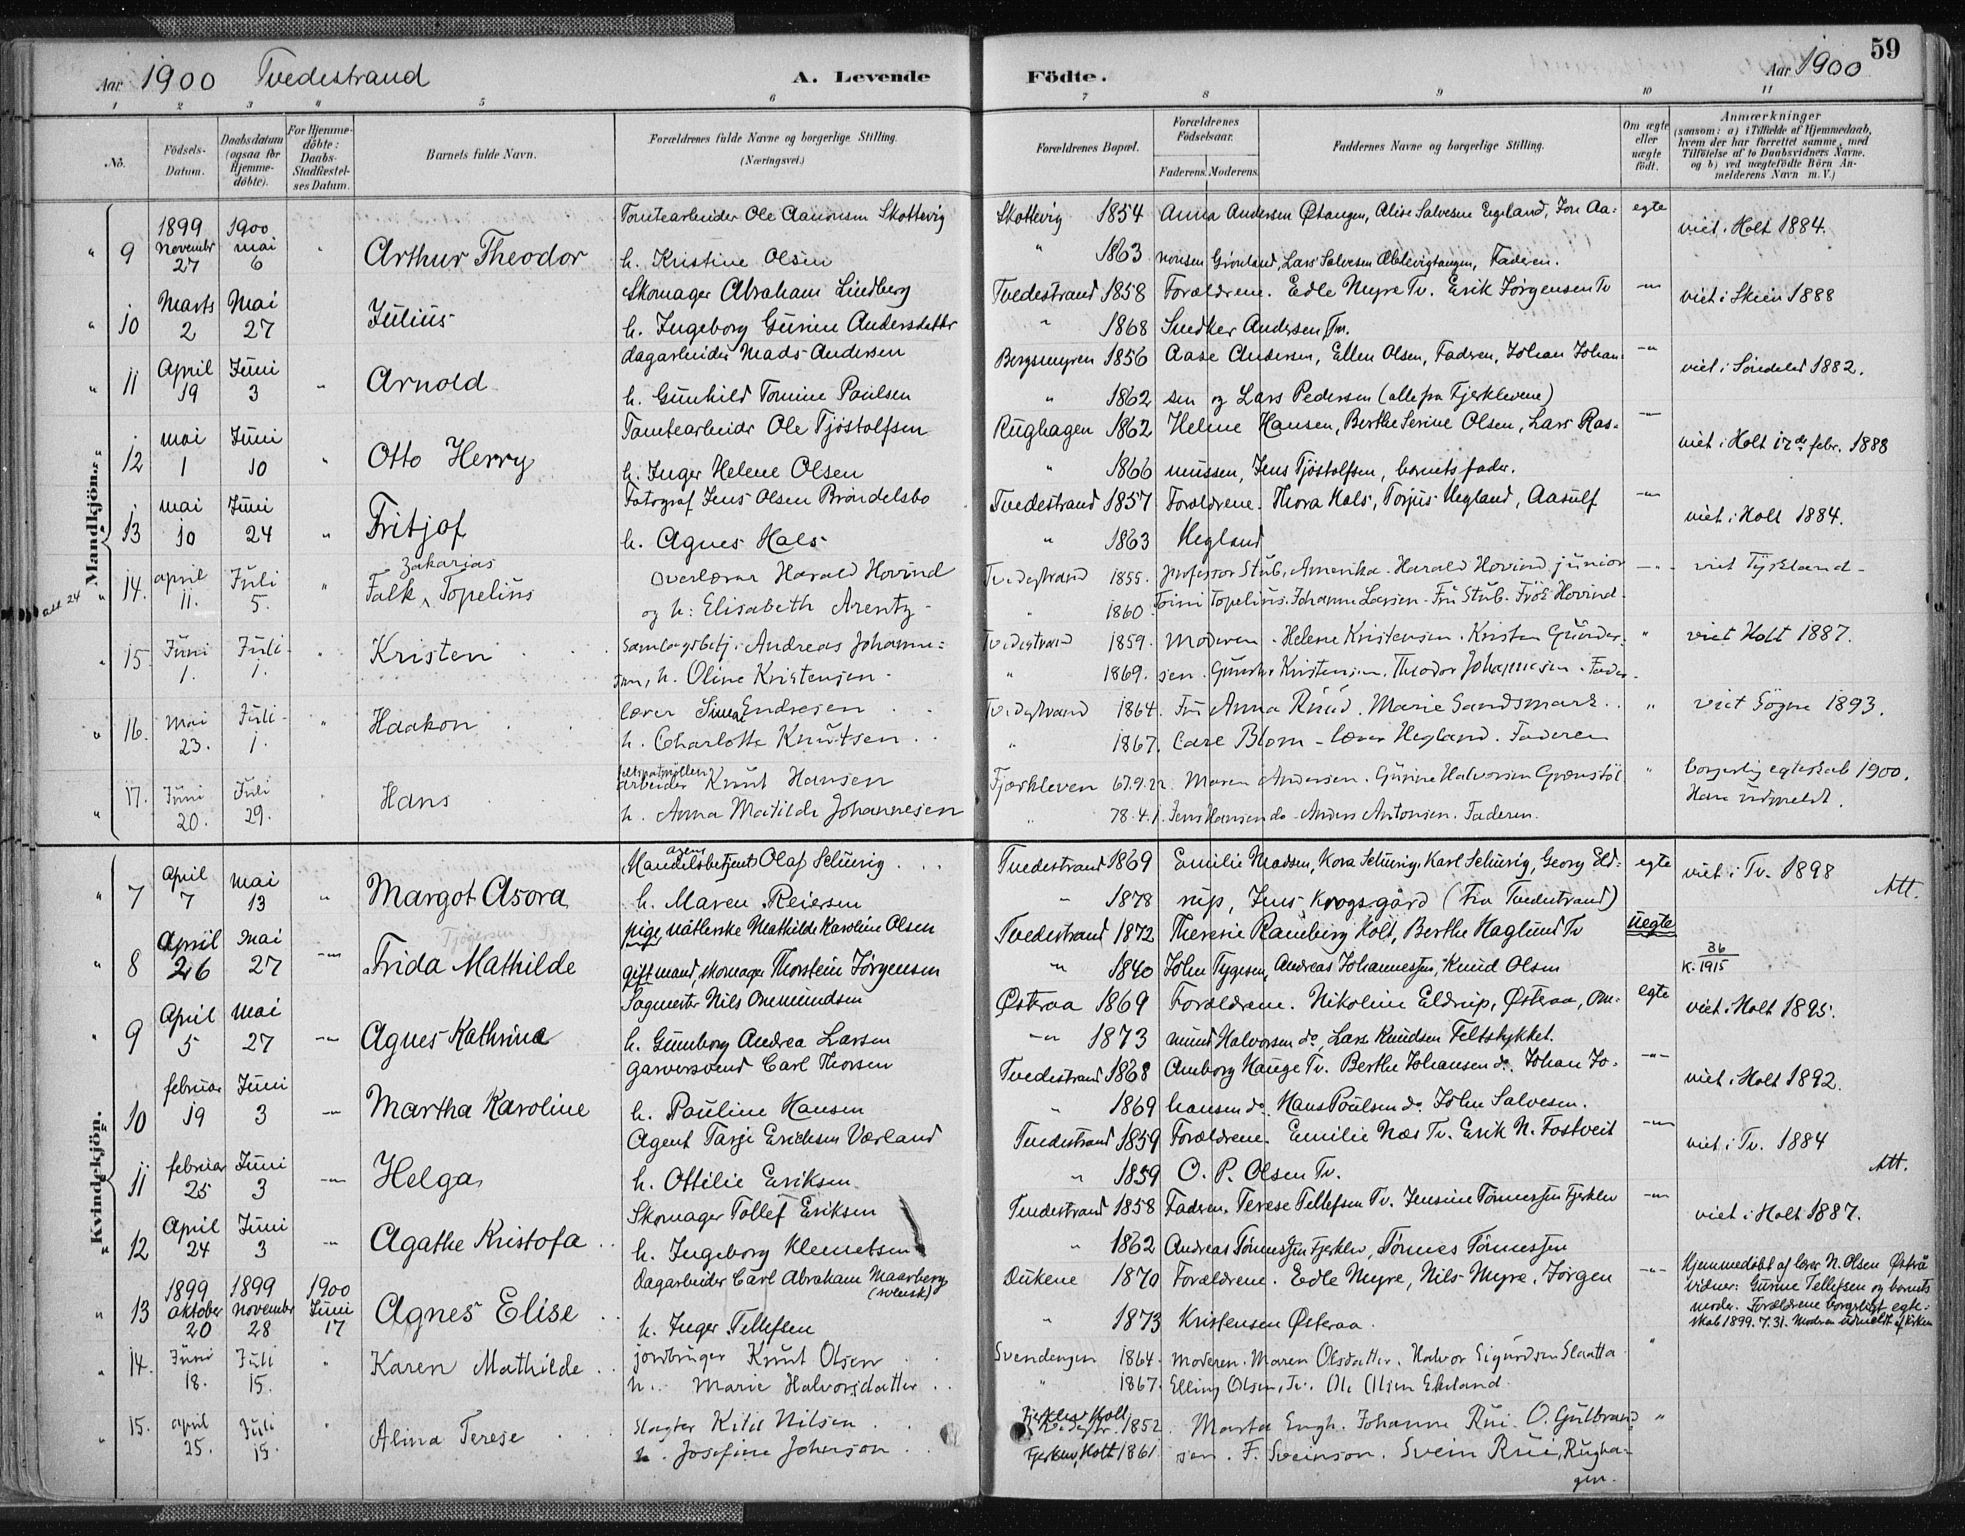 Aar 1900 Tvedestrand A. Levende Födte. Aar 1900 59
1 2 3 4 5 6 7 8 9 10 11
No.
Födsels-Datum.
Daabsdatum (ogsaa for Hjemme-döbte).
For Hjemme-döbte: Daabs-Stadfæstel-ses Datum.
Barnets fulde Navn.
Forældrenes fulde Navne og borgerlige Stilling. (Næringsvei.)
Forældrenes Bopæl.
Forældrenes Födselsaar.
Faderens. Moderens.
Faddernes Navne og borgerlige Stilling.
Om ægte eller uægte födt.
Anmærkninger (saasom: a) i Tilfælde af Hjemmedaab, hvem der har forrettet samme, med Tilföielse af to Daabsvidners Navne, og b) ved uægtefödte Börn An-melderens Navn m. V.)
Mandkjön:
1899 1900 Tomtearbeider Ole Aanonsen Skottevig Skottevig 1854 Anna Andersen Østangen, Alise Salvesen Eegeland, Jon Aa- egte viet i Holt 1884.
" 9 november 27 mai 6 " Arthur Theodor h. Kristine Olsen " 1863 nonsen Grönland, Lars Salvesen, Faderen.
Marts Mai Skomager Abraham Lindberg Tvedestrand 1858 Forældrene. Edle Myre Tv. Erik Jørgensen Tv -"- viet i Skien 1888
" 10 2 27 Julius h. Ingeborg Gurine Andersdatter " 1868 Snedker Andersen, Tv.
April Juni dagarbeider Mads Andersen Bergsmyren 1856 Aase Andersen, Ellen Olsen, Faderen, Johan Johan- -"- viet i Söndeled 1882.
" 11 19 3 " Arnold h. Gunhild Tomine Paulsen " 1862 sen og Lars Pedersen (alle fra Fjerklevene)
mai Juni Tomtearbeider Ole Tjöstolfsen Rughagen 1862 Helene Hansen, Berthe Serine Olsen, Lars Ras- -"- viet i Holt 17de febr. 1888
12 1 10 " Otto Herry h. Inger Helene Olsen " 1866 mussen, Jens Tjöstolfsen, barnets fader.
mai Juni Fotograf Jens Olsen Bröndelsbo Tvedestrand 1857 Forældrene. Thora Hals, Torjus Hegland, Aasulf -"- viet i Holt 1884.
13 10 24 " Fritjof h. Agnes Hals " 1863 Hegland
att 24 " 14. april 11. Juli 5. " Falk Zakarias Topelius Overlærer Harald Hovind Tvedestrand 1855. professor Stub, Amerika. Harald Hovind junior -"- viet Tyskland-
og h: Elisabeth Arentz- " 1860 Toini Topelius. Johanne Larsen. Fru Stub. Frök Hovind.
" 15 Juni 1. Juli 1. " Kristen Samlagsbetj. Andreas Johanne- Tvedestrand 1859. Moderen. Helene Kristensen. Kristen Gunder- " viet Holt 1887.
sen, h. Oline Kristensen. " 1869. sen. Kristensen. Theodor Johannesen. Fader.
" 16. Mai 23. Juli 1. " Haakon lærer Endresen Tvedestrand 1864. Fru Anna Ruud. Marie Sandsmark. " viet Sögne 1893.
h. Charlotte Knutsen " 1867. Carl Blom - lærer Hegland. Faderen
" 17. Juni 20. Juli 29. " Hans feltspatmöllen arbeider Knut Hansen Fjærkleven 67.9.22. Maren Andersen. Gurine Halvorsen Grænstöl " borgerlig egteskab 1900.
h. Anna Matilde Johannesen " 78.4.1. Jens Hansen do. Anders Antonsen. Faderen. Han udmeldt.
Kvindekjön.
april mai Handelsbetjent agent Olaf Schurig Tvedestrand 1869 Emilie Madsen, Kora Schurig, Karl Schurig, Georg Eld- egte viet i Tv. 1898 Att.
" 7 7 13 " Margot Asora h. Maren Reiersen " 1878 rup, Jens Krogsgård (Fra Tvedestrand)
April mai pige, nätlerske Mathilde Karoline Olsen Tvedestrand 1872 Theresie Ramberg Holt, Berthe Haglund Tv uegte
" 8 26 27 -"- Frida Mathilde gift mand, skomager Thorstein Jörgensen " 1840 John Tygesen, Andreas Johannessen, Knud Olsen 36 K. 1915
April mai Sagmester Nils Ommundsen Østeraa 1869 Forældrene. Nikoline Eldrup, Østeraa, Om- egte viet i Holt 1895.
" 9 5 27 -"- Agnes Kathrine h. Gunborg Andrea Larsen -"- 1873 mund Halvorsen do, Lars Knudsen Feltstykket.
februar Juni Garversvend Carl Thorsen Tvedestrand 1868 Amborg Hauge Tv. Berthe Johansen do. Johan Jo- -"- viet i Holt 1892.
10 19 3 -"- Martha Karoline h. Pauline Hansen " 1869 hansen do. Hans Poulsen do. John Salvesen.
februar Juni Agent Tarje Ericksen Værland Tvedestrand 1859 Forældrene. Emilie Næs Tv. Erik N. Fostveit -"- viet i Tv. 1884
11 25 3 -"- Helga h. Ottilie Eriksen " 1859 O. P. Olsen Tv. Att.
April Juni Skomager Tollef Eriksen Tvedestrand 1858 Faderen. Terese Tellefsen Tv. Jensine Tönnessen Fjerklev -"- viet i Holt 1887.
" 12 24 3 -"- Agathe Kristofa h. Ingeborg Klemetsen " 1862 Andreas Tönnessen Fjerklev, Tönnes Tönnessen
1899 1899 1900 Dagarbeider Carl Abraham Maarberg (svensk) Dukene 1870 Forældrene. Edle Myre, Nils Myre, Jørgen -"- Hjemmedöbt af lærer N. Olsen Østrå
" 13 oktober 20 november 28 Juni 17 Agnes Elise h. Inger Tellefsen " 1873 Kristensen Østeraa. vidner: Gurine Tellefsen og barnets
moder. Forældrene borgerligt egte-
skab 1899. 7.31. Moderen udmeldt af kirken
" 14. Juni 18. Juli 15. " Karen Mathilde jordbruger Knut Olsen Svendengen 1864. Moderen. Maren Olsdatter. Halvor Sigurdsen Slaatta "
h. Marie Halvorsdatter " 1867. Elling Olsen, Tv. Ole Olsen Ekeland.
" 15. april 25. Juli 15. " Alina Terese Slagter Kitil Nilsen Fjerklev Holt 1852. Marta Engh. Johanne Rui. O. Gulbrand- "
h. Josefine Johnson Fjerklev, Holt 1861. sen. F. Sveinson. Svein Rui, Rugha-
gen.